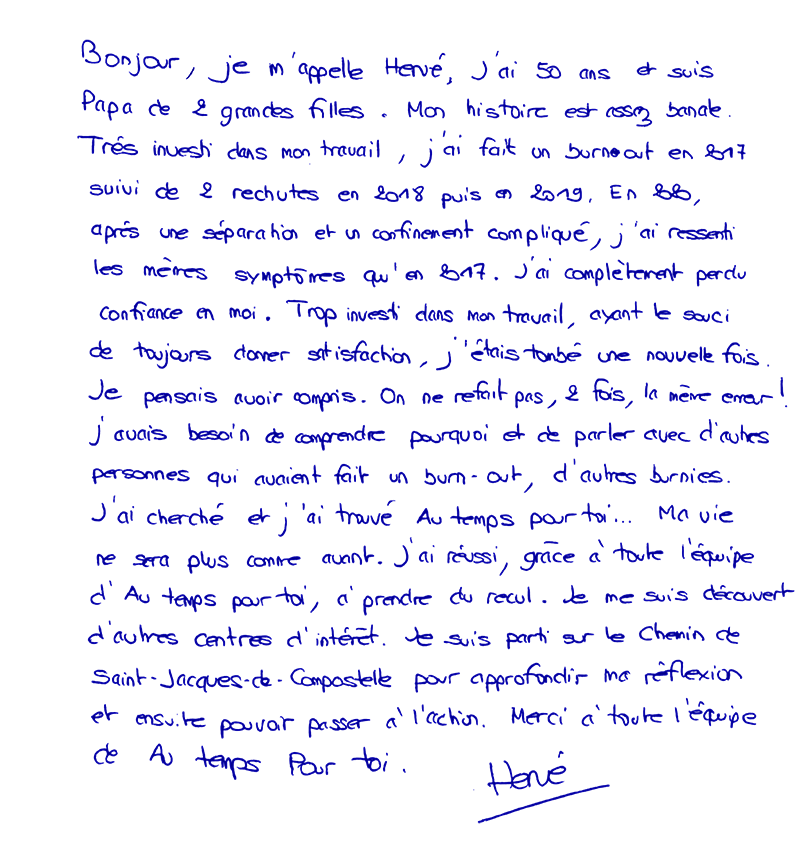 Bonjour, je m'appelle Hervé, J'ai 50 ans et suis
Papa de 2 grandes filles. Mon histoire est assez banale.
Très investi dans mon travail, j'ai fait un burn-out en 2017
suivi de 2 rechutes en 2018 puis en 2019. En 2020,
après une séparation et un confinement compliqué, j'ai ressenti
les mêmes symptômes qu'en 2017. J'ai complètement perdu
confiance en moi. Trop investi dans mon travail, ayant le souci
de toujours donner satisfaction, j'étais tombé une nouvelle fois.
Je pensais avoir compris. On ne refait pas, 2 fois, la même erreur!
j'avais besoin de comprendre pourquoi et de parler avec d'autres
personnes qui avaient fait un burn-out, d'autres burnies.
J'ai cherché et j'ai trouvé Au temps pour toi... Ma vie
ne sera plus comme avant. J'ai réussi, grâce à toute l'équipe
d'Au temps pour toi, à prendre du recul. Je me suis découvert
d'autres centres d'intérêt. Je suis parti sur le Chemin de
Saint-Jacques-de-Compostelle pour approfondir ma réflexion
et ensuite pouvoir passer à l'action. Merci à toute l'équipe
de Au temps Pour toi.
Hervé